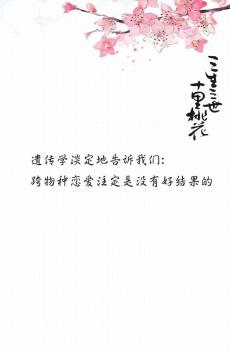 三生三世
十里桃花
遗传学淡定地告诉我们:
跨物种恋爱注定是没有好结果的